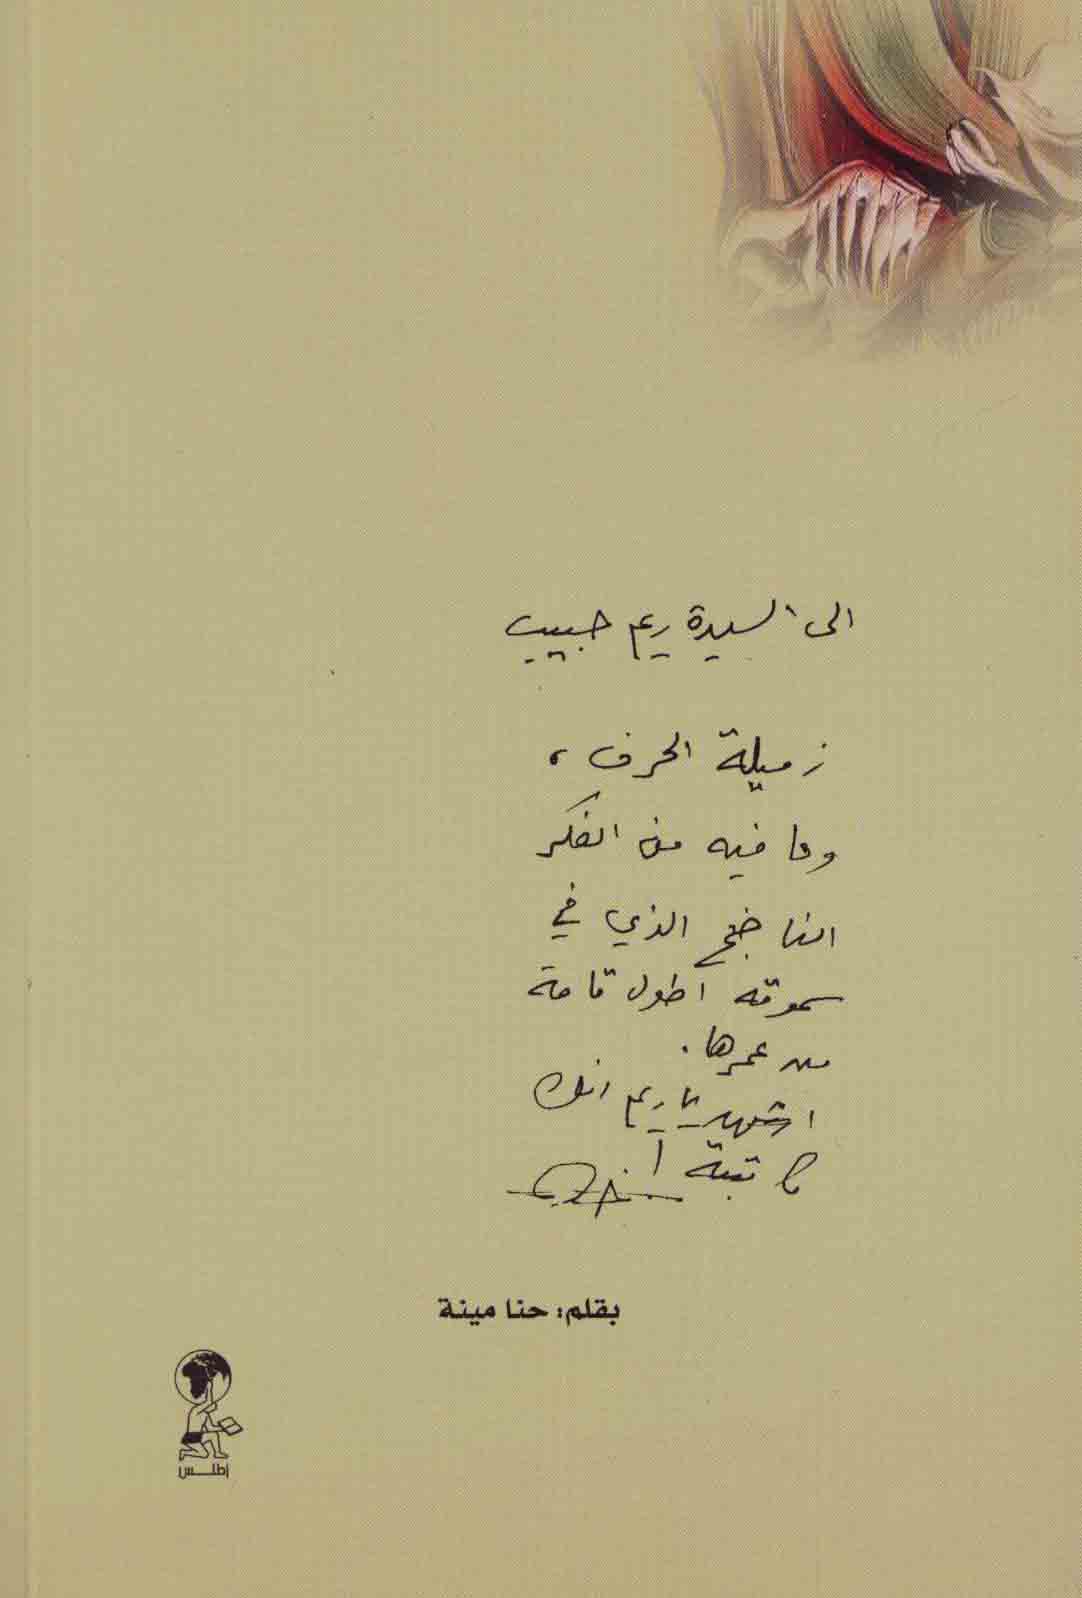 الى السيدة ريم حبيب
زميلة الحرف ،
وما فيه من الفكر
الناضج الذي في
سموقه اطول قامة
من عمرها .
اشهد يا ريم انك
كاتبة !
بقلم: حنا مينة
أطلس